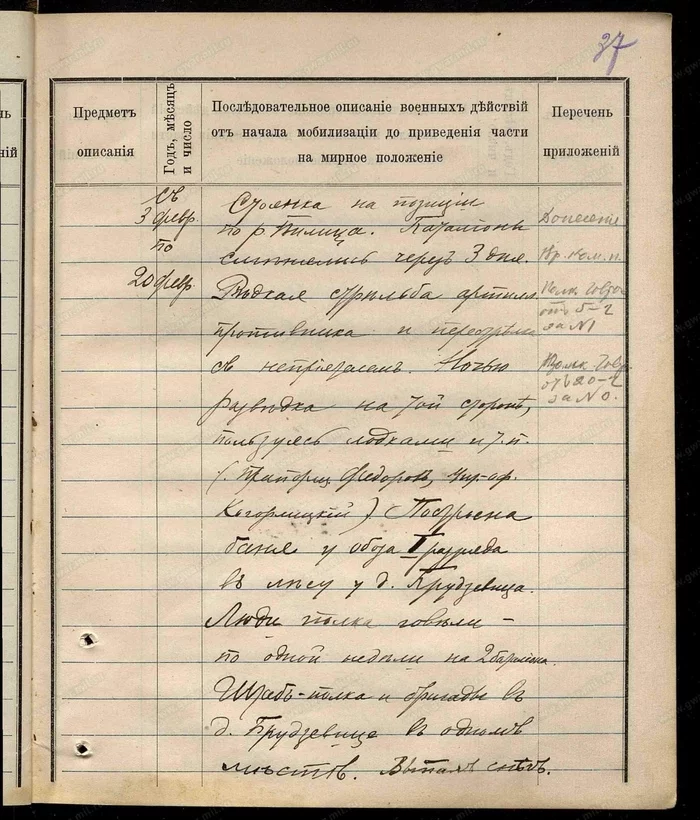 37
Предметъ описанія
Годъ, мѣсяцъ и число
Послѣдовательное описаніе военныхъ дѣйствій
отъ начала мобилизаціи до приведенія части
на мирное положеніе
Перечень приложеній
съ
3 февр.
по
20 февр.
Стоянка на позиціи
по р. Пилица. Баталіоны
смѣнялись черезъ 3 дня.
Рѣдкая стрѣльба артилл.
противника и перестрѣлка
съ непріятелемъ. Ночью
развѣдка на той сторонѣ,
пользуясь лодками и т.п.
(Прапорщ. Федоровъ, унт-оф.
) Построена
баня у обоза I разряда
въ лѣсу у д. Брудзевице.
Люди полка говѣли –
по одной недѣли на 2 баталіона.
Штабъ-полка и бригады въ
д. Брудзевице въ одномъ
мѣстѣ.
Донесеніе
отъ 5–2
за №1
отъ 20–2
за №